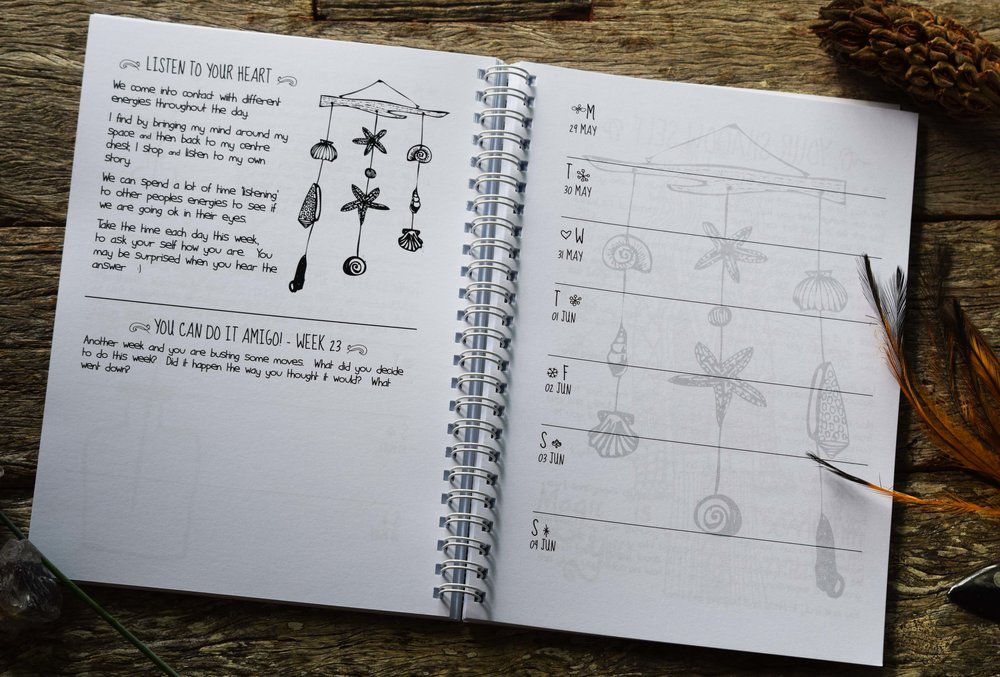 LISTEN TO YOUR HEART
We come into contact with different
energies throughout the day.
I find by bringing my mind around my
space and then back to my centre
chest I stop and listen to my own
story.
We can spend a lot of time 'listening'
to other peoples energies to see if
we are going ok in their eyes.
Take the time each day this week,
to ask your self how you are. You
may be surprised when you hear the
answer :)
YOU CAN DO IT AMIGO! - WEEK 23
Another week and you are busting some moves. What did you decide
to do this week? Did it happen the way you thought it would? What
went down?
M
29 MAY
T
30 MAY
W
31 MAY
T
01 JUN
F
02 JUN
S
03 JUN
S
04 JUN